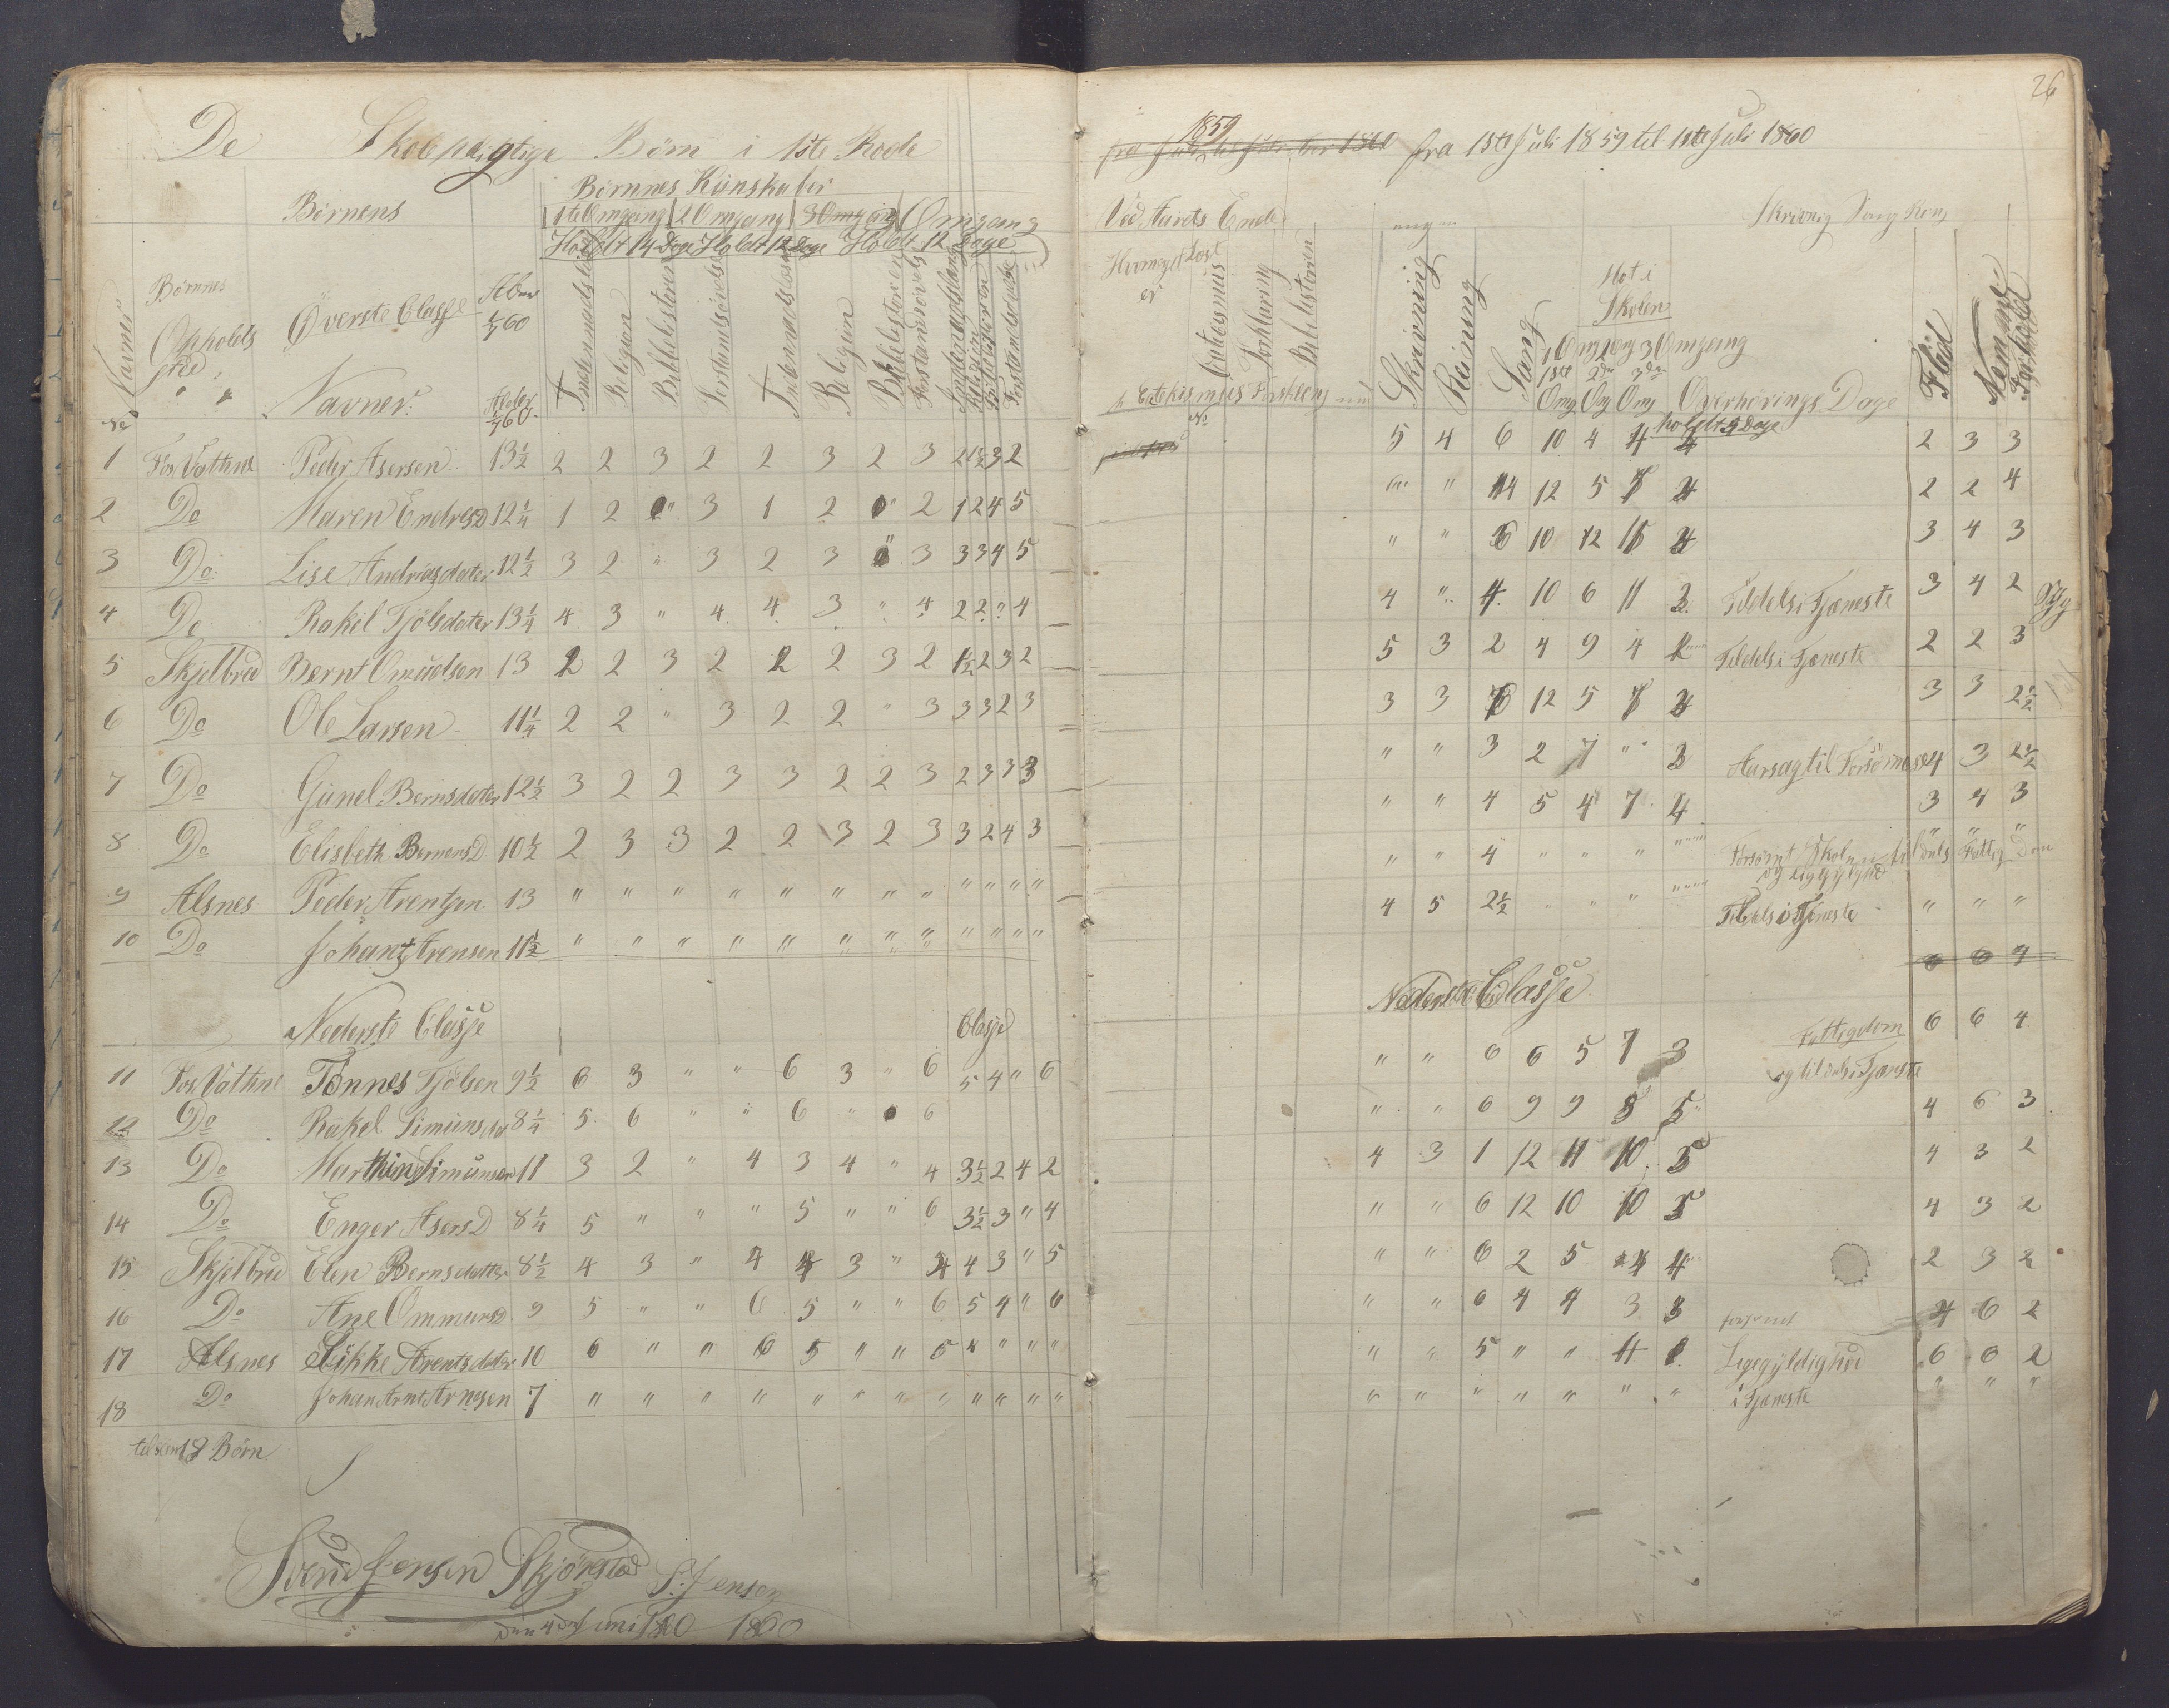 26
De Skolepligtige Børn i 1ste Rode
1859
fra 1ste Juli 1859 til 1ste Juli 1860
Børnenes Kunskaber
Børnens
1ste Omgang 2 Omgang 3 Omgang Omgang
Holdt 14 Dage Holdt 12 Dage Holdt 12 Dage
Ved Aarets Ende
Børnenes
Opholds
sted
Øverste Classe
Navner
Alder
1/7 60
No
Indenadslæsen
Religion
Bibelhistorien
Forstandsøvelse
Indenadslæsen
Religion
Bibelhistorien
Forstandsøvelse
Hvormeget Læst
er
Catecismus
Forklaring
Bibelhistorien
Skrivning
Reining
Sang
Mot i
Skolen
1 Omg 2 Omg 3 Omgang
1ste 2den 3die
Omg Omg Omg
Overhørings Dage
holdt 5 Dage
Flid
Nemme
1 Fos Vathne Peder Asersen 13½ 2 2 3 2 2 3 2 3 2 1½ 3 2 5 4 6 10 4 4 4 2 3 3
2 Do Maren Endresd 12¼ 1 2 " 3 1 2 " 2 1 2 4 5 " " 4 12 5 7 4 2 2 4
3 Do Lise Andreasdater 12½ 3 2 " 3 2 3 " 3 3 3 4 5 " " 6 10 12 11 4 3 4 3
4 Do Rakel Tjølsdater 13¼ 4 3 " 4 4 3 " 4 2 2 " 4 4 " 4 10 6 11 3 Tildels i Tjæneste 3 4 2
5 Skjelbred Bernt Omuelsen 13 2 2 3 2 2 2 3 2 1½ 2 3 2 5 3 2 4 9 4 2 Tildels i Tjæneste 2 2 3
6 Do Ole Larsen 11¼ 2 2 " 3 2 2 " 3 3 3 2 3 3 3 6 12 5 7 4 3 3 2½
7 Do Gunel Bernsdater 12½ 3 2 2 3 3 2 2 3 2 3 3 3 " " 3 2 7 " 3 Aarsag til Forsømmelse 4 3 2½
8 Do Elisbeth BernensD 10½ 2 3 3 2 2 3 2 3 3 2 4 3 " " 4 5 4 7 4 3 4 3
9 Alsnes Peder Arentsen 13 " " " " " " " " " " " " " " 4 " " " " Forsømt Skolen tildels Fattigdom
og Ligegyldihed
10 Do Johan Arensen 11½ " " " " " " " " " " " " 4 5 2½ " " " " Tildels i Tjæneste " " "
Nederste Classe Classe Nederste Classe
11 Fos Vathne Tønnes Tjølsen 9½ 6 3 " " 6 3 " 6 5 4 " 6 " " 6 6 5 7 3 Fattigdom 6 6 4
og tildels i Tjæneste
12 Do Rakel Simunsdat 8¼ 5 6 " " 6 " " 6 " " 6 9 9 8 5 4 6 3
13 Do Marthin Simunsen 11 3 2 " 4 3 4 " 4 3½ 2 4 2 4 3 1 12 11 10 5 4 3 2
14 Do Enger AsersD 8¼ 5 " " " 5 " " 6 3½ 3 " 4 " " 6 12 10 10 5 4 3 2
15 Skjelbred Elen Bernsdatter 8½ 4 3 " 4 4 3 " 4 4 3 " 5 " " 6 2 5 4 4 2 3 2
16 Do Ane Ommunsd 9 5 " " 6 5 " " 6 5 4 " 6 " " 6 4 4 3 3 forsømt 4 6 2
17 Alsnes Sikke Arentsdater 10 6 " " 6 5 " " 5 " " " " " " 5 " " 4 1 Ligegyldighed 6 6 2
18 Do Johan Arnt Arnesen 7 " " " " " " " " " " " " " " " " " " " i Tjæneste " " "
tilsam 18 Børn
Svend Jensen Skjørestad S. Jensen
den 4de Juni 1860 1860